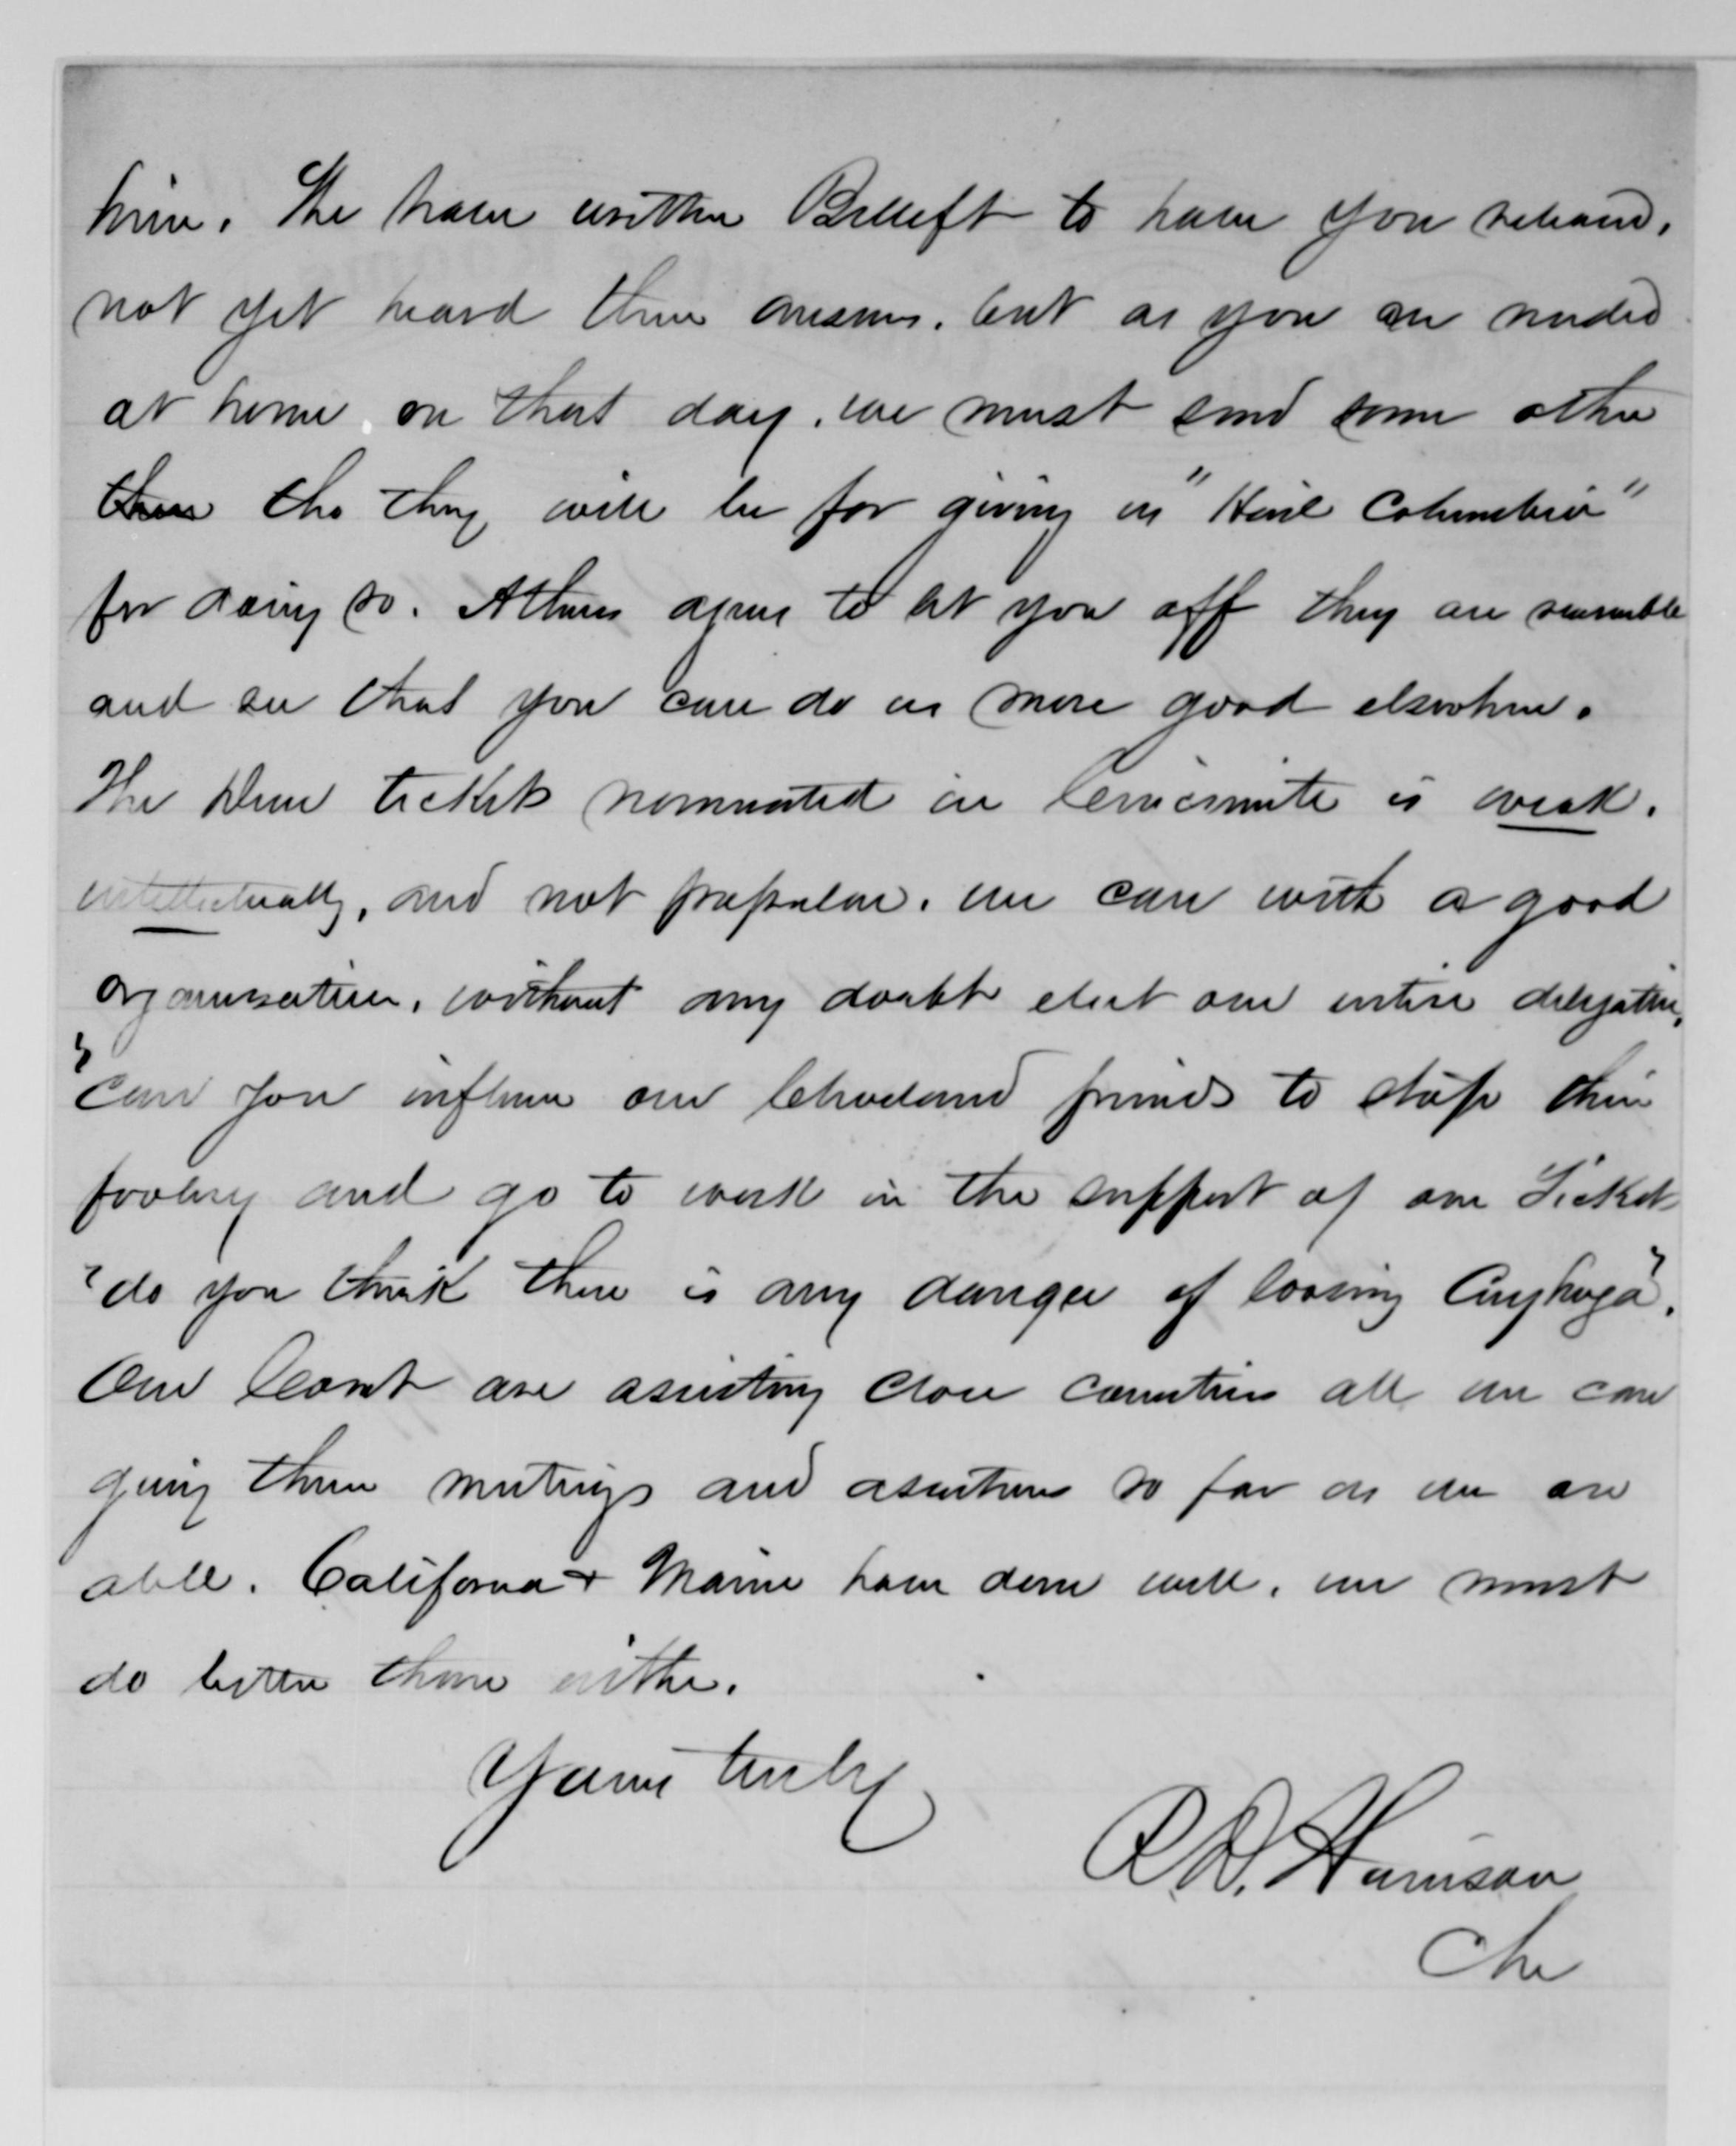 him. We have written Belleft to have you released,
not yet heard their answer. but as you are needed
at home. on that day. we must send some other
tho they will be for giving us "Hail Columbia"
for doing so. Athens agrees to let you off they are sensible
and see that you can do us more good elsewhere.
The Dem ticket nominated in Cincinnati is weak.
intellectually, and not popular. we can with a good
organization, without any doubt elect our entire delegation,
"Can you influence our Cleveland friends to stop their
foolery and go to work in the support of our Ticket
"do you think there is any danger of loosing Cuyhoga".
Our Comt are assisting close counties all we can
giving them meetings and assistance so far as we are
able. California & Maine have done well. we must
do better than either.
Yours truly
R.D. Harrison
Ch